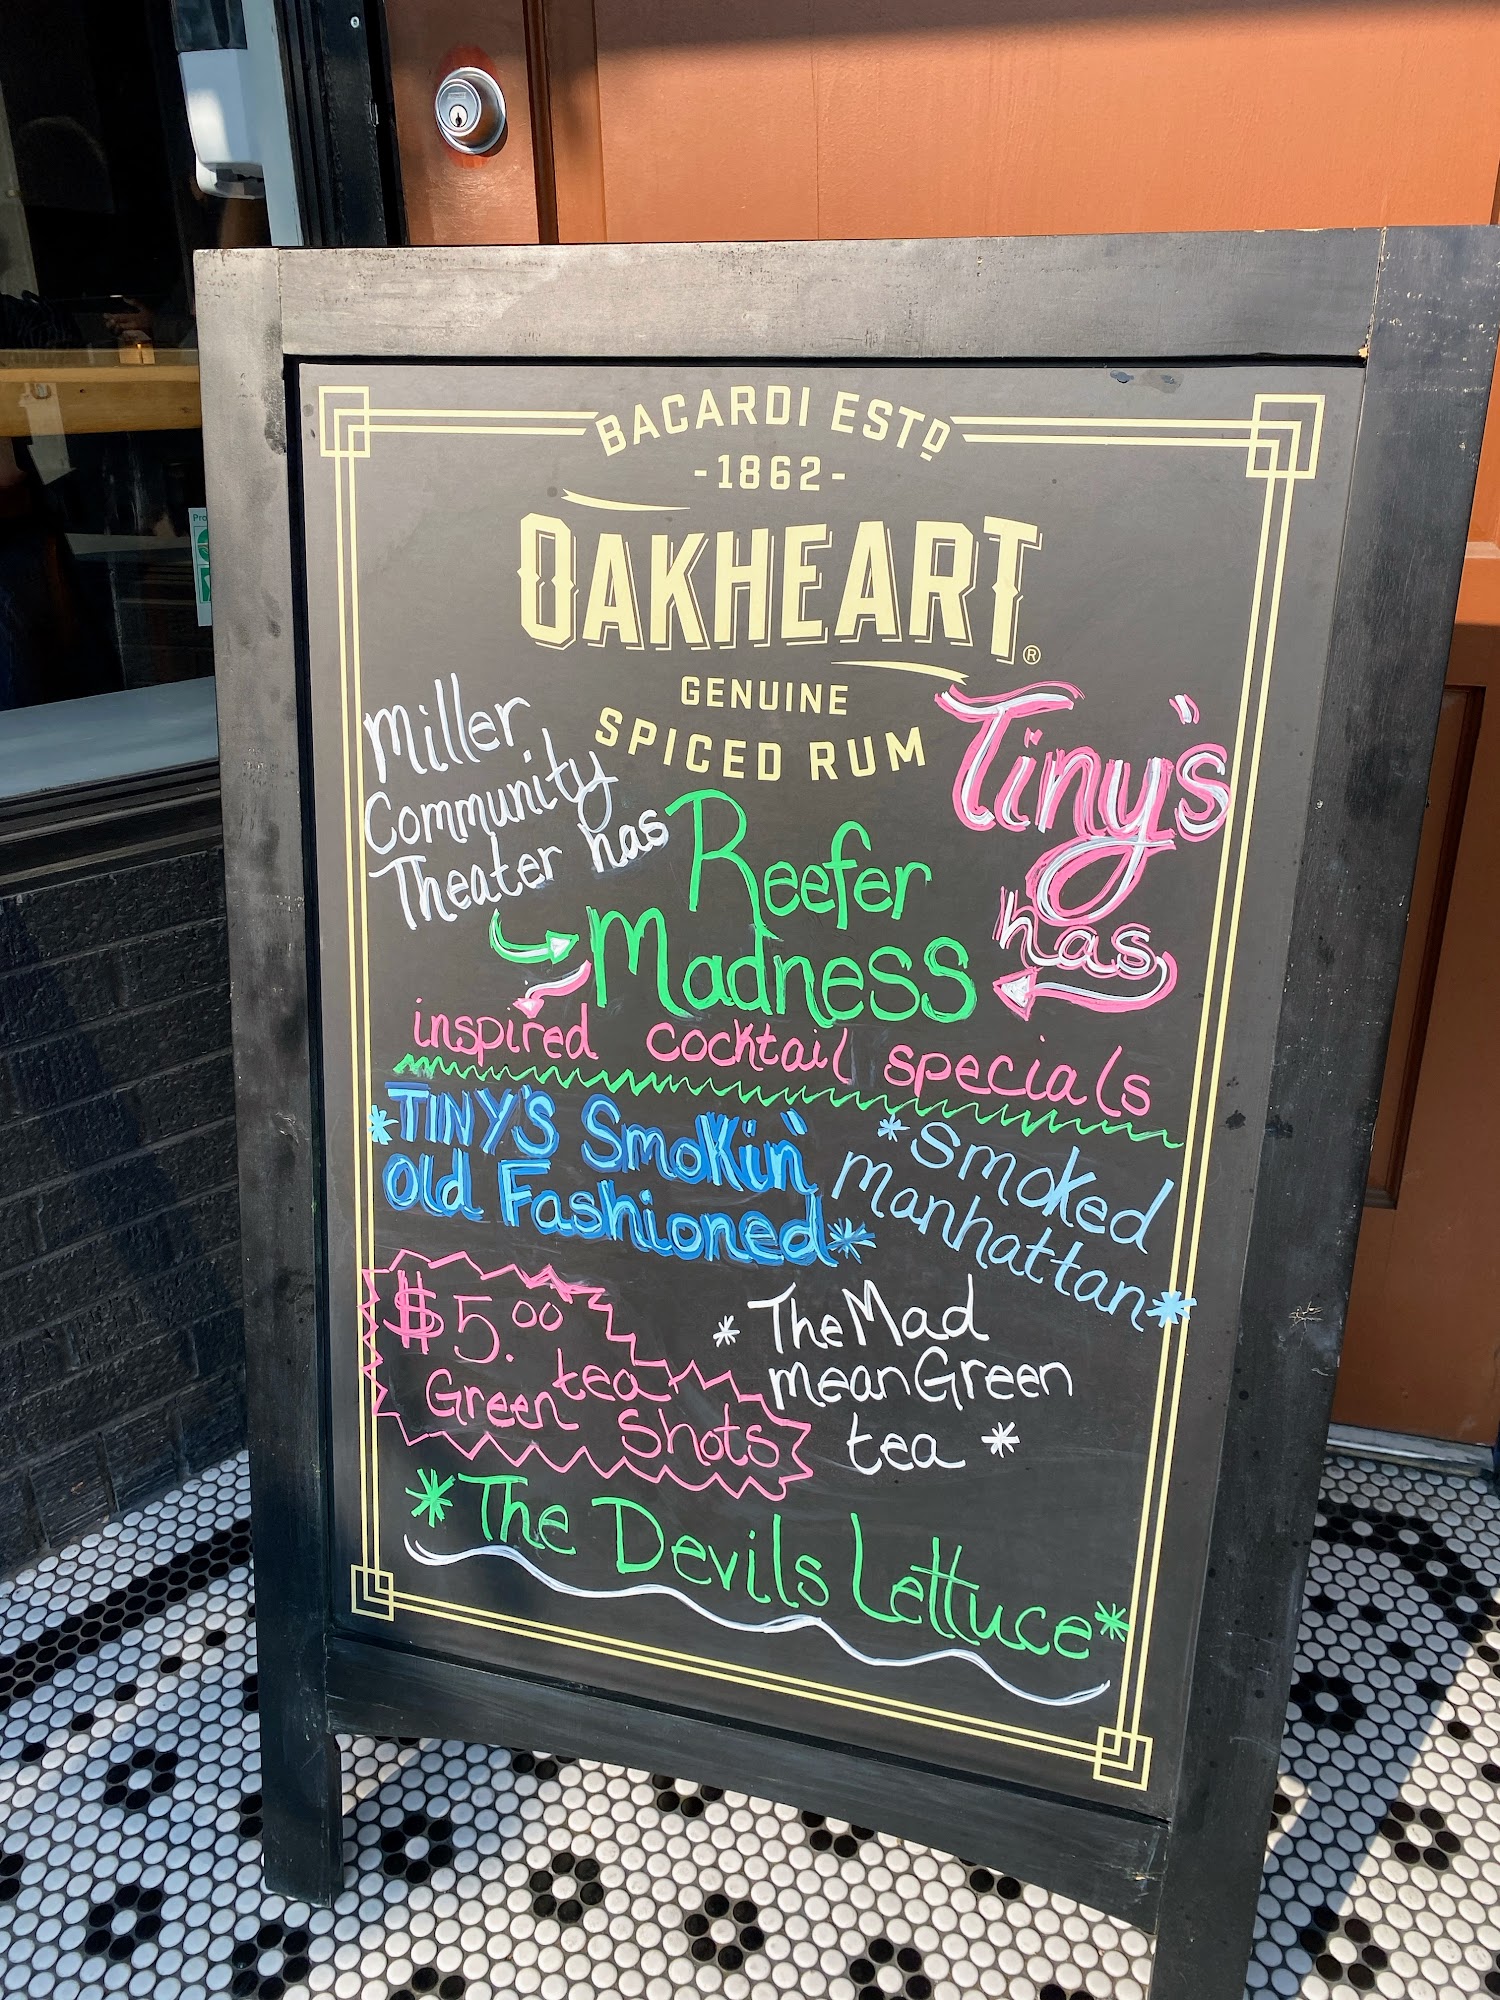 BACARDI ESTD
-1862-
OAKHEART®
GENUINE
SPICED RUM
Miller
Community
Theater has
Reefer
Madness
Tiny's
has
inspired cocktail specials
*TINY'S Smokin'
Old Fashioned*
*Smoked
Manhattan*
$5.00
Green tea
Shots
*The Mad
mean Green
tea*
*The Devils Lettuce*